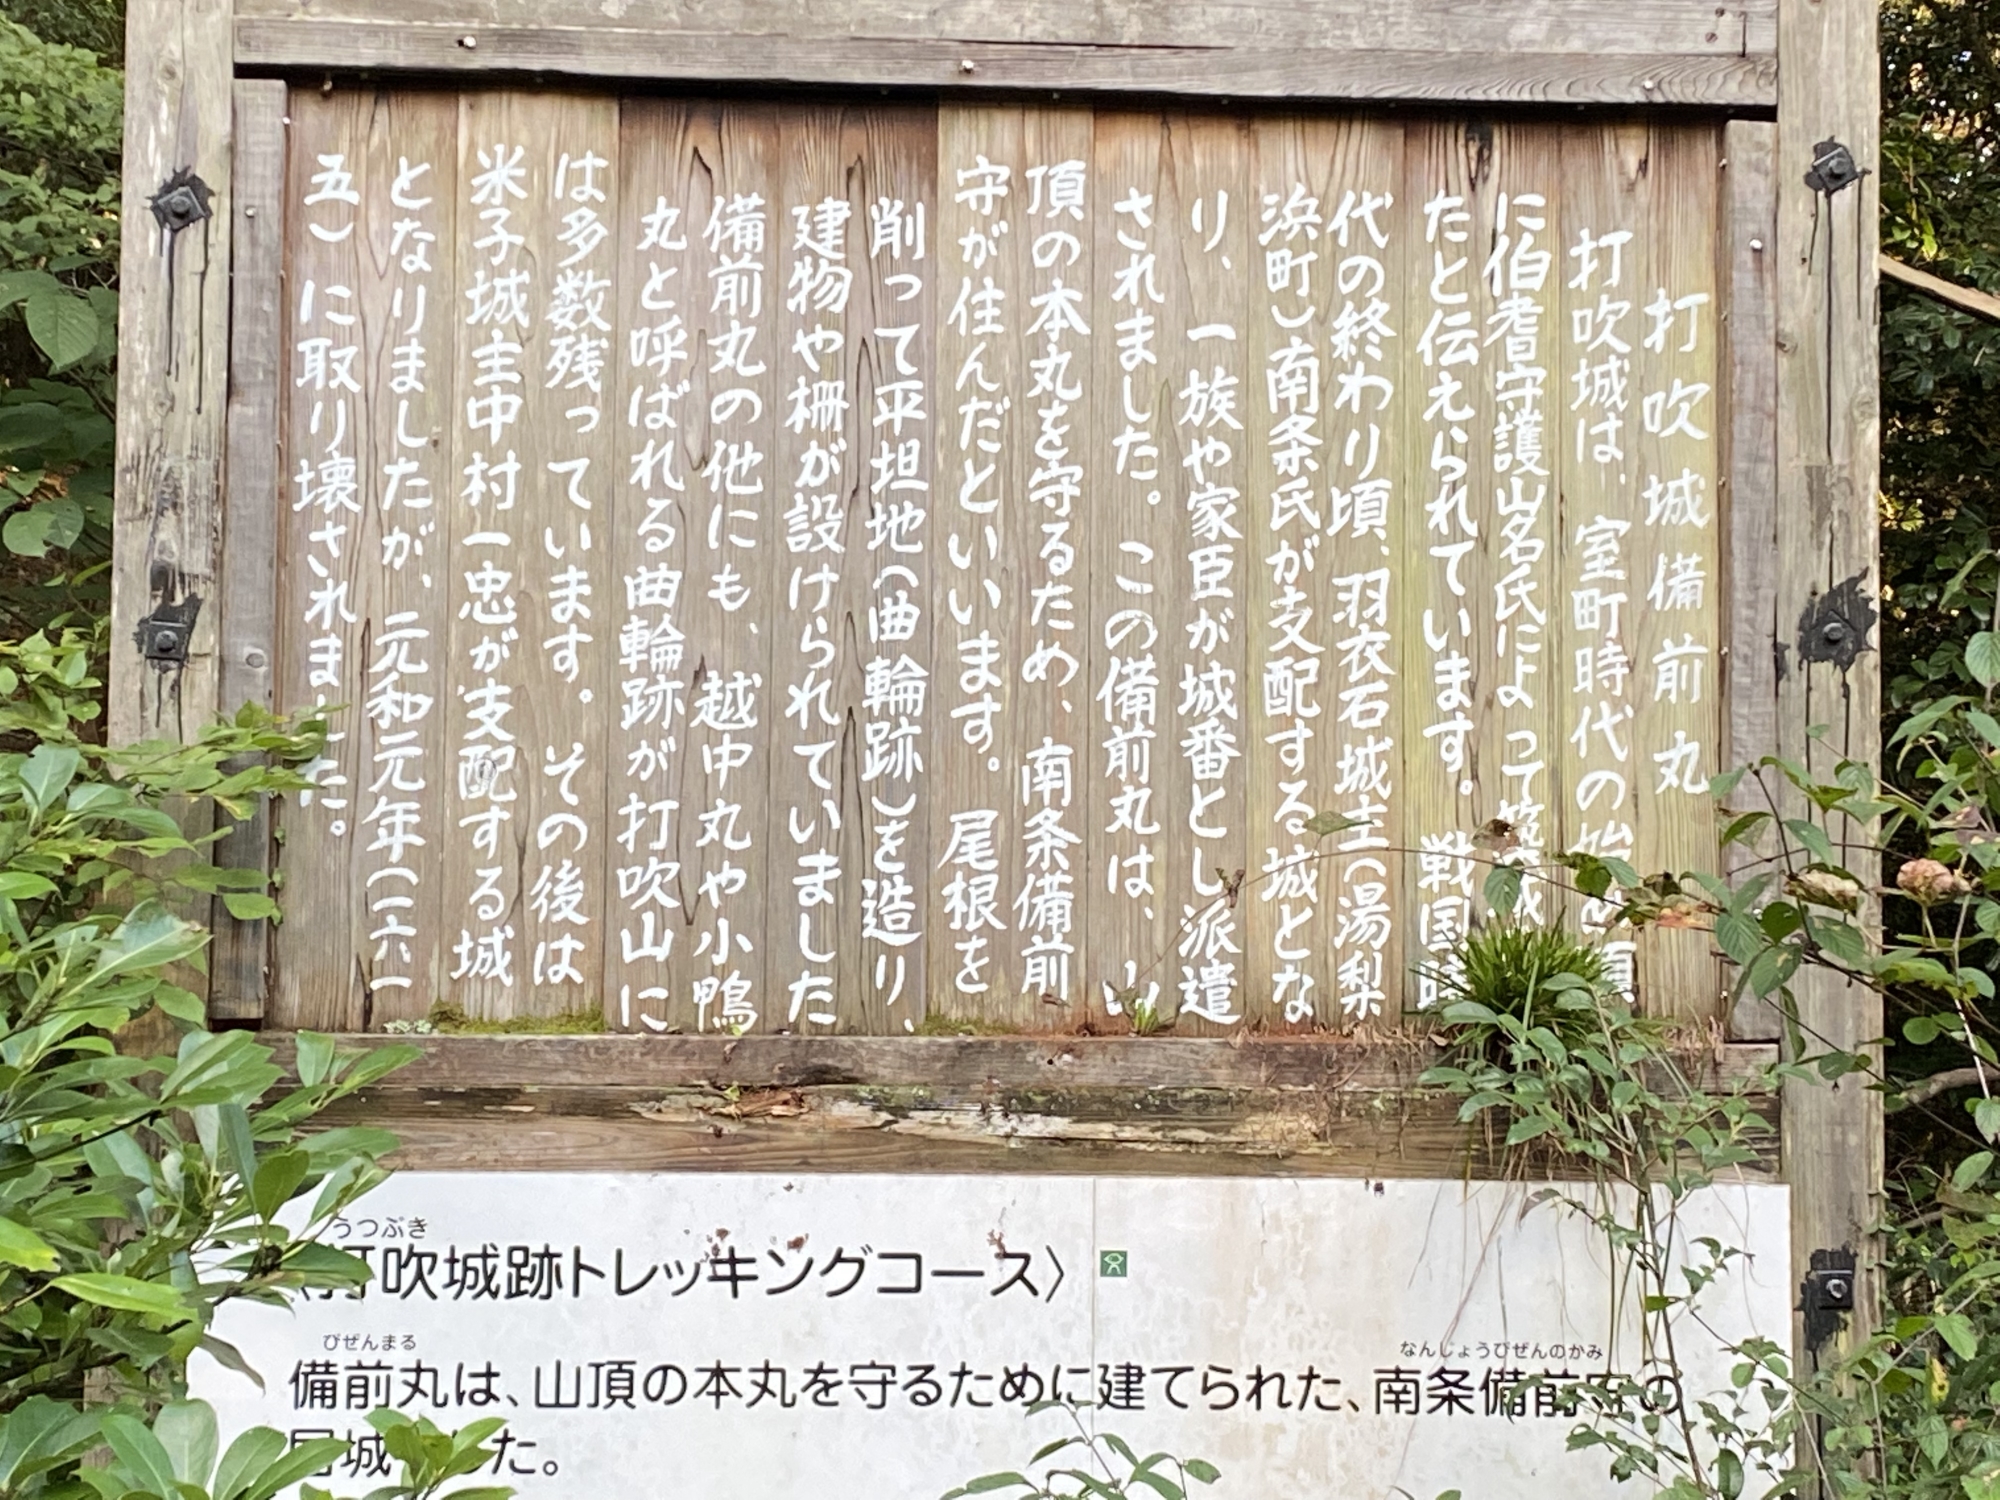 打吹城備前丸
打吹城は、室町時代の始め頃
に伯耆守護山名氏によって築城
たと伝えられています。戦国時
代の終わり頃、羽衣石城主(湯梨
浜町)南条氏が支配する城とな
り、一族や家臣が城番とし派遣
されました。この備前丸は、山
頂の本丸を守るため、南条備前
守が住んだといいます。尾根を
削って平坦地(曲輪跡)を造り、
建物や柵が設けられていました
備前丸の他にも、越中丸や小鴨
丸と呼ばれる曲輪跡が打吹山に
は多数残っています。その後は
米子城主中村一忠が支配する城
となりましたが、元和元年(一六一
五)に取り壊されました。
うつぶき
〈打吹城跡トレッキングコース〉
びぜんまる なんじょうびぜんのかみ
備前丸は、山頂の本丸を守るために建てられた、南条備前守の
居城でした。